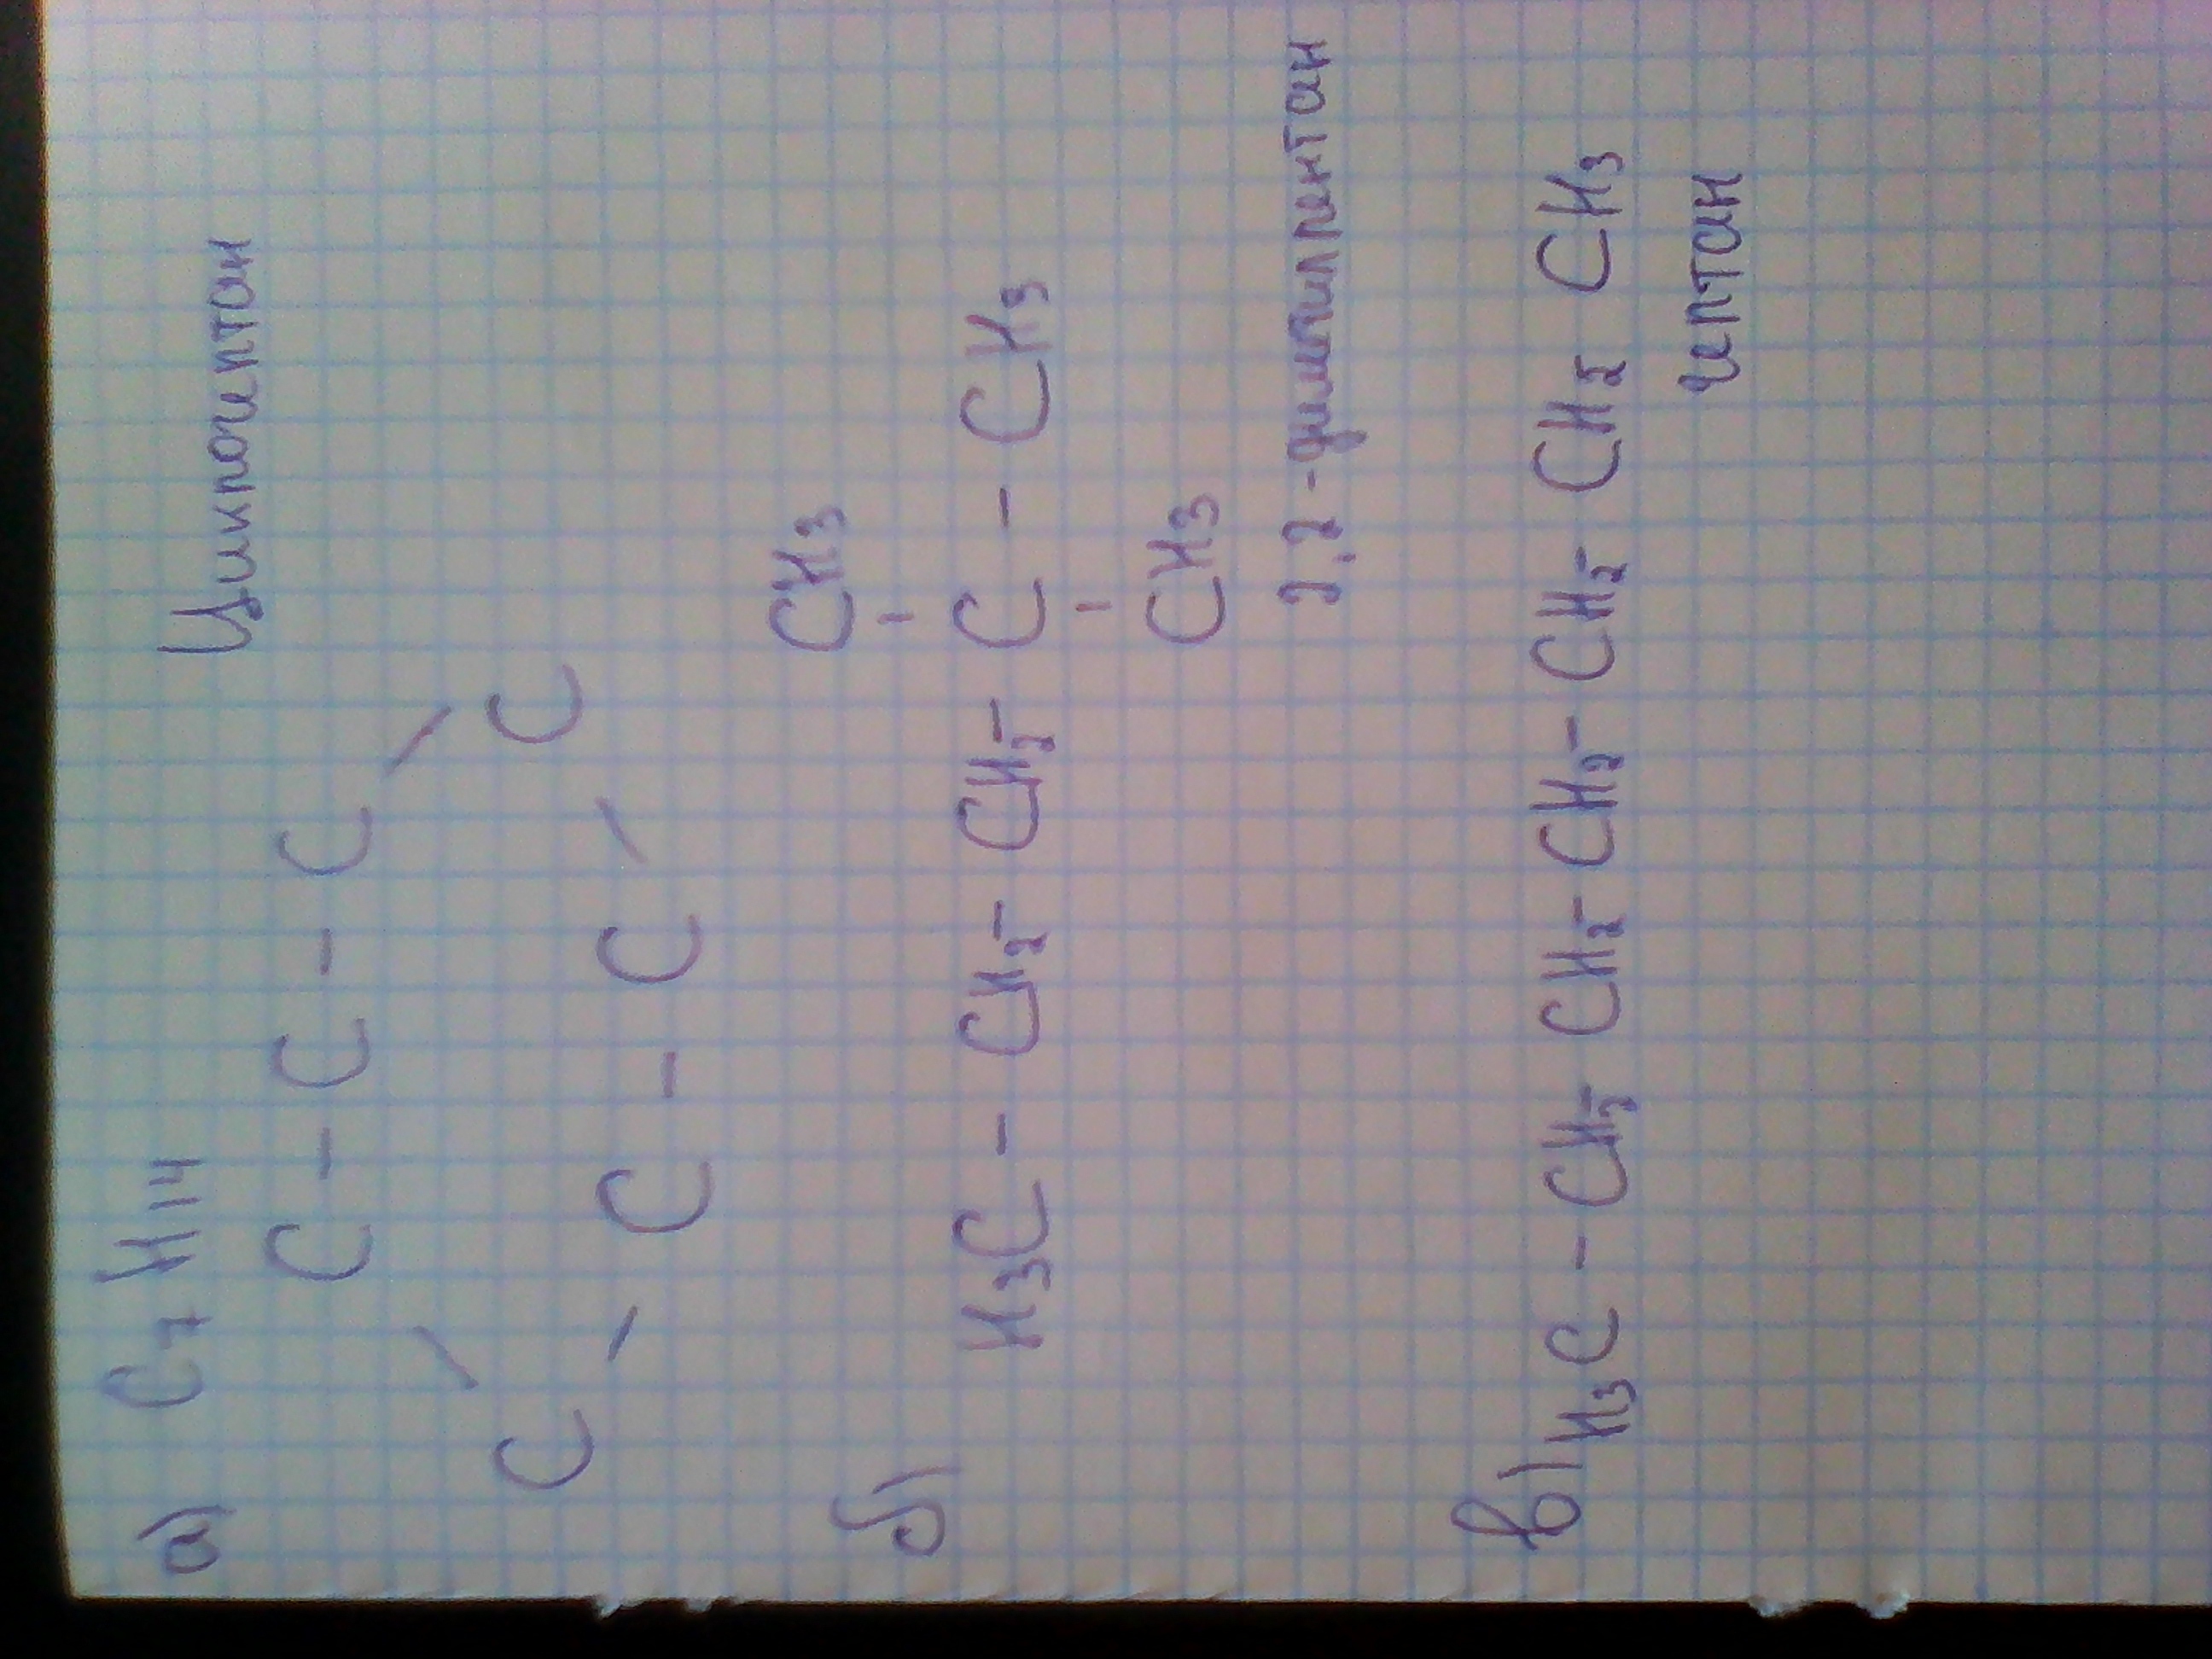 а) C₇ H₁₄ Циклогептан
C - C - C
/ \
C C
\ /
C - C
б) CH₃
|
H₃C - CH₂ - CH₂ - C - CH₃
|
CH₃
2,2-диметилпентан
в) H₃C - CH₂ - CH₂ - CH₂ - CH₂ - CH₂ CH₃
гептан